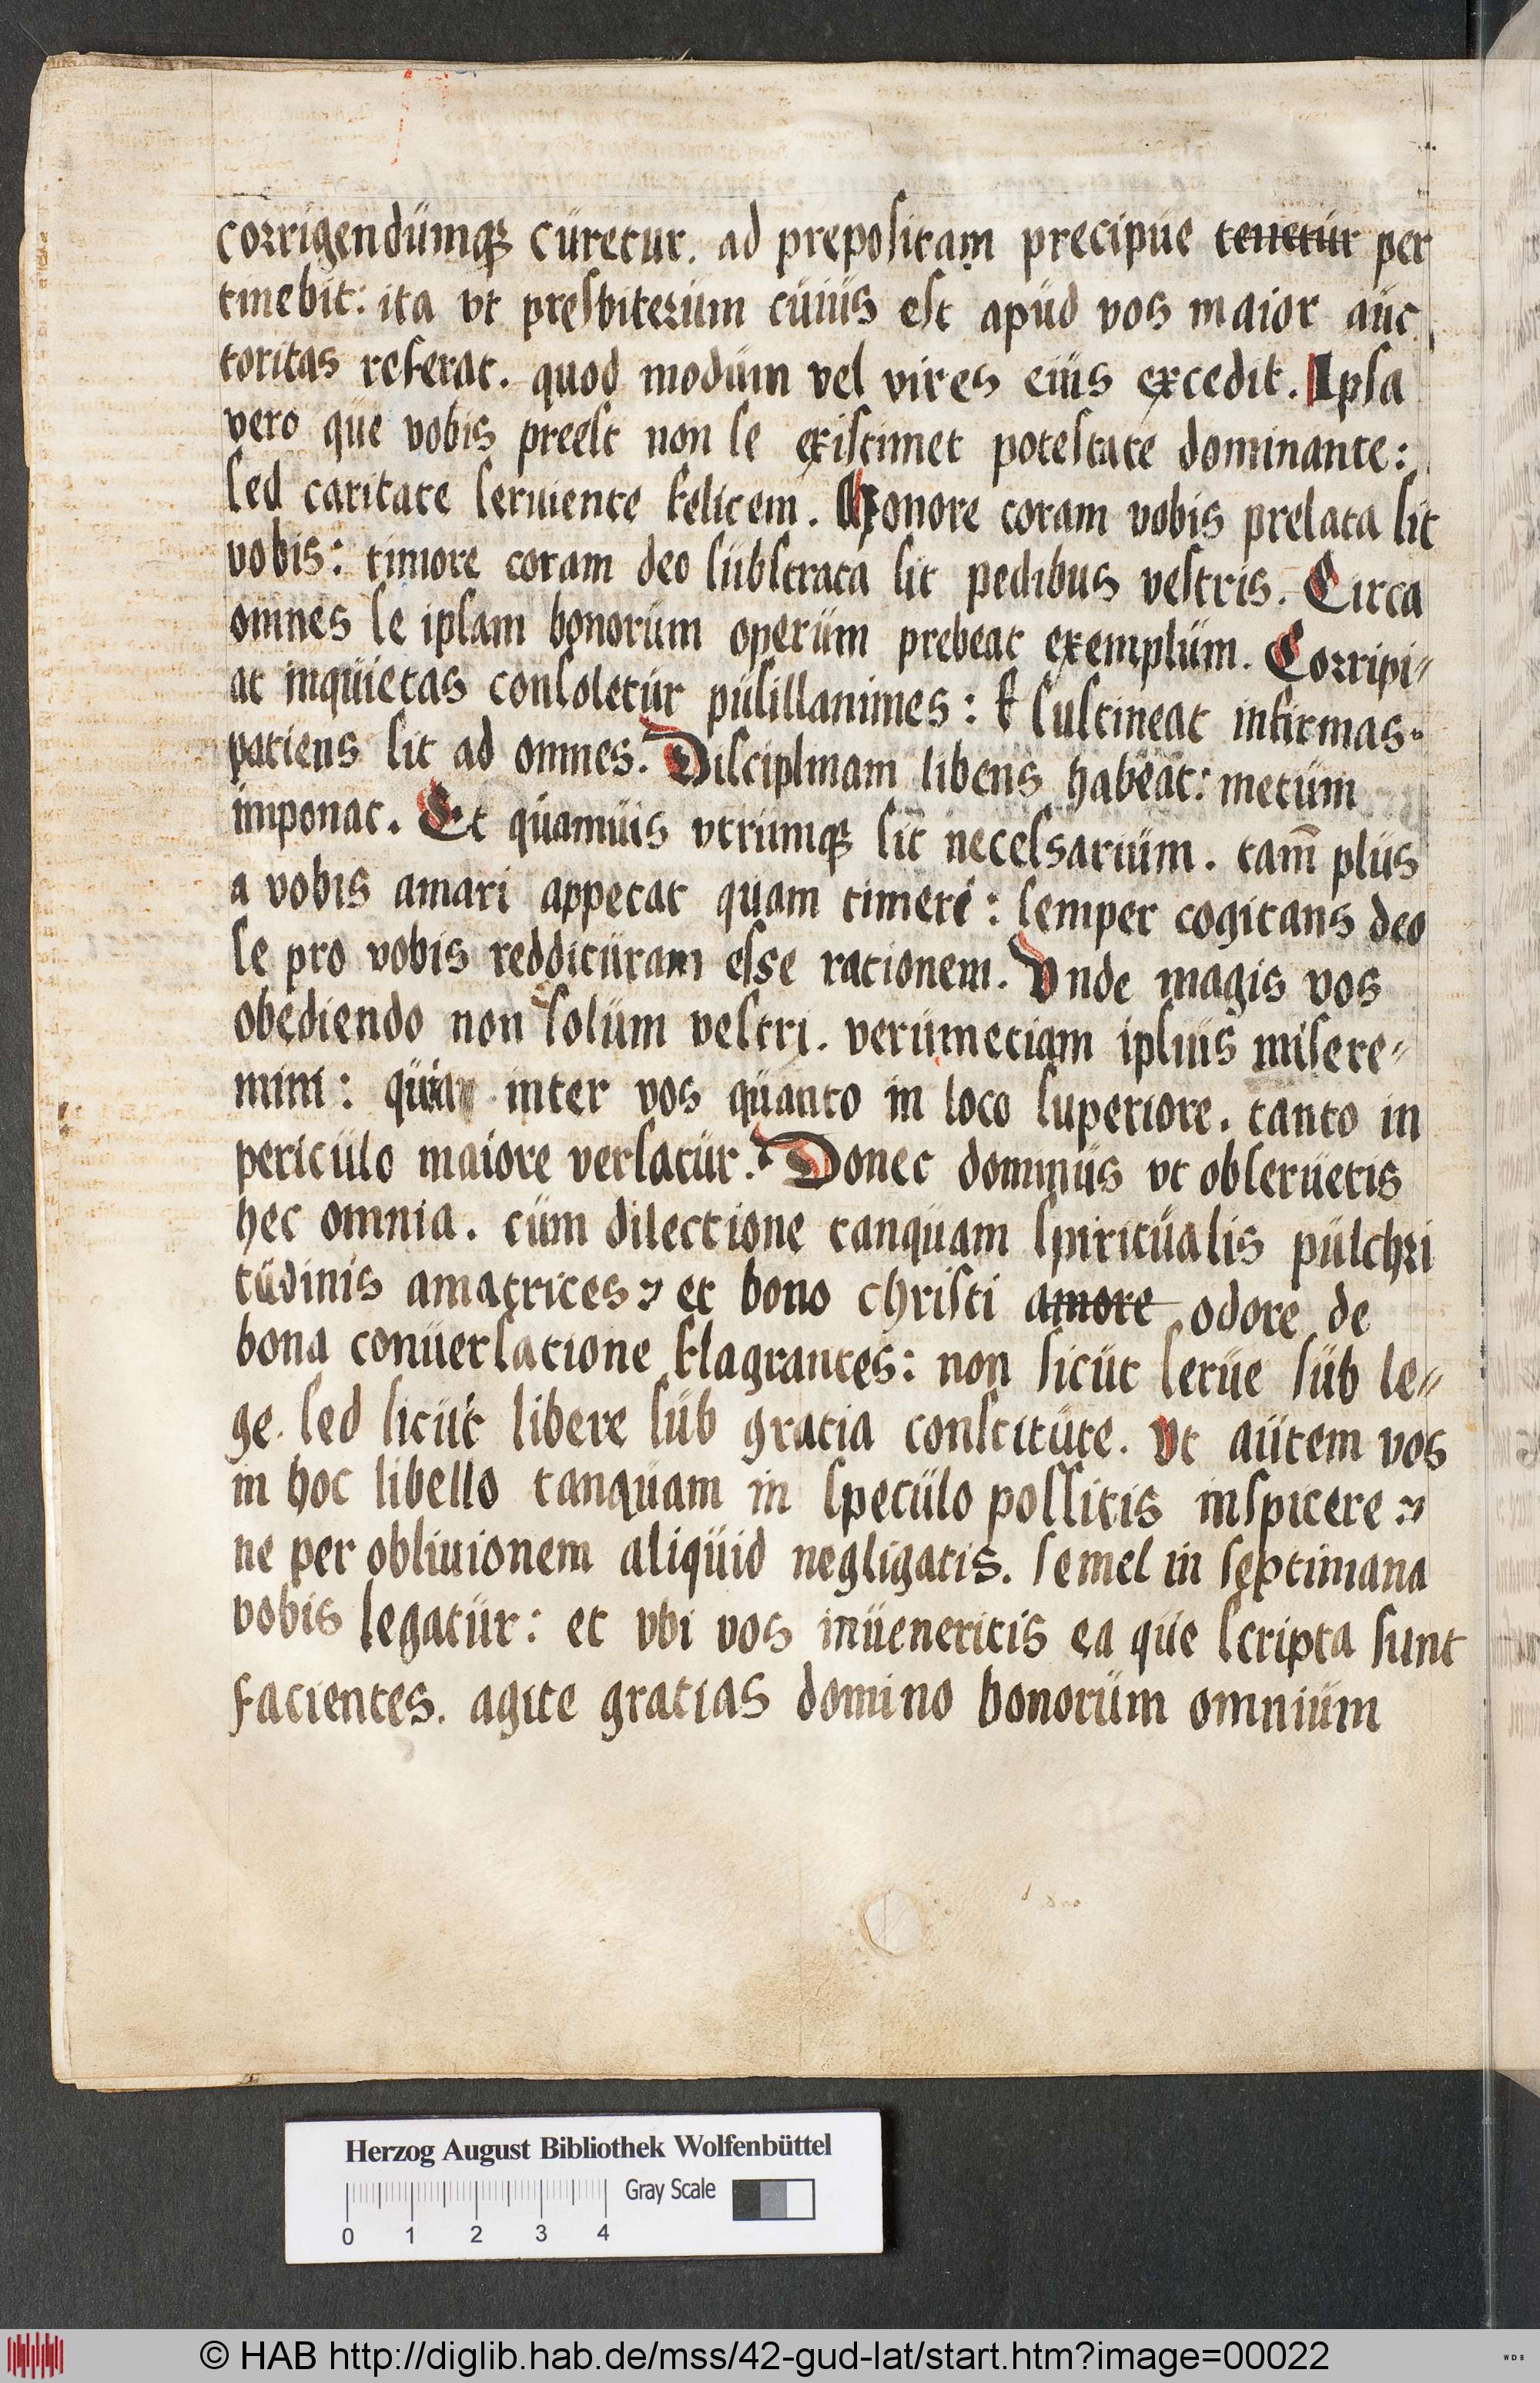 corrigendumq; curetur. ad prepositam precipue tenetur per
tinebit: ita vt presbiterum cuius est apud vos maior auc
toritas referat. quod modum vel vires eius excedit. Ipsa
vero que vobis preest non se existimet potestate dominante:
sed caritate seruiente felicem. Honore coram vobis prelata sit
vobis: timore coram deo substrata sit pedibus vestris. Circa
omnes se ipsam bonorum operum prebeat exemplum. Corripi〃
at inquietas consoletur pusillanimes: & sustineat infirmas.
patiens sit ad omnes. Disciplinam libens habeat: metum
imponat. Et quamuis vtrumq; sit necessarium. tam̄ plus
a vobis amari appetat quam timeri: semper cogitans deo
se pro vobis reddituram esse rationem. Vnde magis vos
obediendo non solum vestri. verumetiam ipsius misere〃
mini: quia inter vos quanto in loco superiore. tanto in
periculo maiore versatur. Donec dominus vt obseruetis
hec omnia. cum dilectione tanquam spiritualis pulchri
tudinis amatrices et bono christi amore odore de
bona conuersatione flagrantes: non sicut serue sub le〃
ge. sed sicut libere sub gratia constitute. Vt autem vos
in hoc libello tanquam in speculo possitis inspicere
ne per obliuionem aliquid negligatis. semel in septimana
vobis legatur: et vbi vos inueneritis ea que scripta sunt
facientes. agite gratias domino bonorum omnium
Herzog August Bibliothek Wolfenbüttel
Gray Scale
0 1 2 3 4
© HAB http://diglib.hab.de/mss/42-gud-lat/start.htm?image=00022
WDB